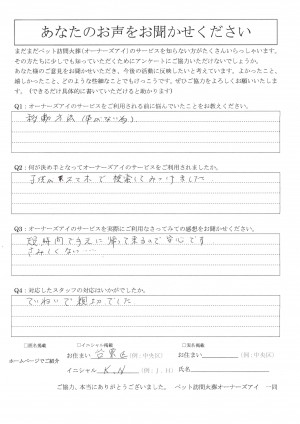 あなたのお声をお聞かせください
まだまだペット訪問火葬(オーナーズアイ)のサービスを知らない方がたくさんいらっしゃいます。
その方たちに少しでも知っていただくためにアンケートにご協力いただけないでしょうか。
あなた様のご意見をお聞かせいただき、今後の活動に反映したいと考えています。よかったこと、
嬉しかったこと、どのような些細なことでもけっこうです。ぜひご協力をよろしくお願いいたします。
(できるだけ具体的に書いていただけると助かります)
Q1:オーナーズアイのサービスをご利用される前に悩んでいたことをお教えください。
移動方法(車がない為)
Q2:何が決め手となってオーナーズアイのサービスをご利用されましたか。
子供がスマホで検索してみつけました
Q3:オーナーズアイのサービスを実際にご利用なさってみての感想をお聞かせください。
短時間で手元に帰って来るので安心です
さみしくない……
Q4:対応したスタッフの対応はいかがでしたか。
ていねいで親切でした
□匿名掲載 □イニシャル掲載 □実名掲載
ホームページでご紹介
お住まい (例:中央区) お住まい (例:中央区)
イニシャル K.N (例:J.H) 氏名
ご協力、本当にありがとうございました。 ペット訪問火葬オーナーズアイ 一同